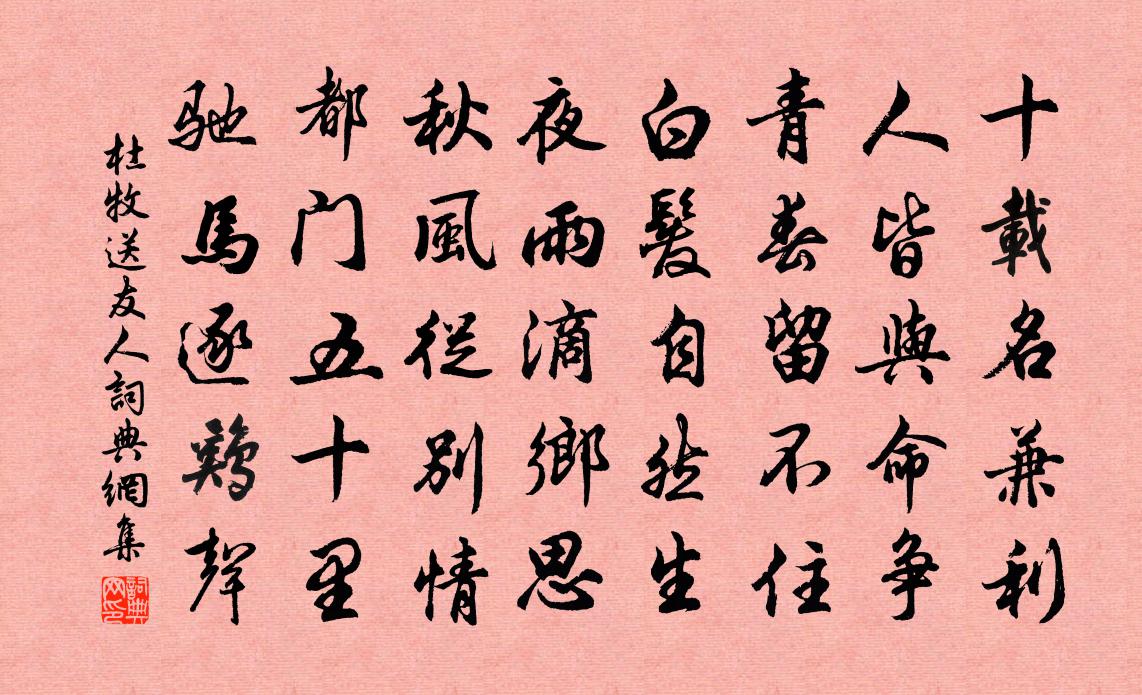 十載名兼利
人皆與命争
青春留不住
白髮自然生
夜雨滴鄉思
秋風從别情
都门五十里
馳馬逐鷄聲
杜牧送友人詞典網集
詞典网印